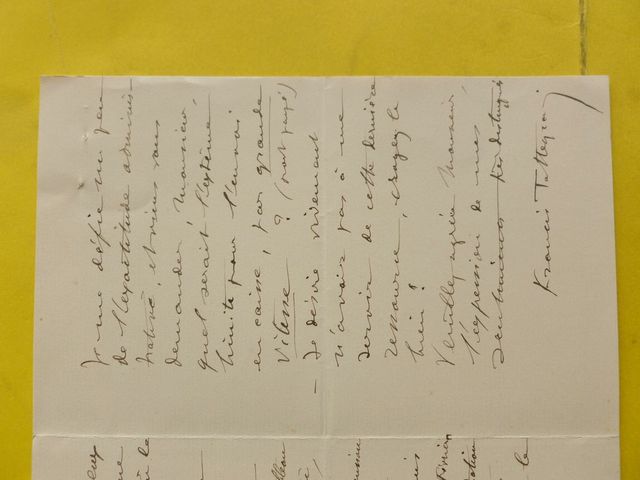 Je me défie un peu
de l'exactitude adminis-
trative, et viens vous
demander, Monsieur,
quel serait l'extrême
limite pour l'envoi
en caisse, par grande
vitesse ? (port payé)
— Je désire vivement
n'avoir pas à me
servir de cette dernière
ressource, croyez le
bien !
Veuillez agréer Monsieur,
l'expression de mes
sentiments très distingués
Francis Tattegrain